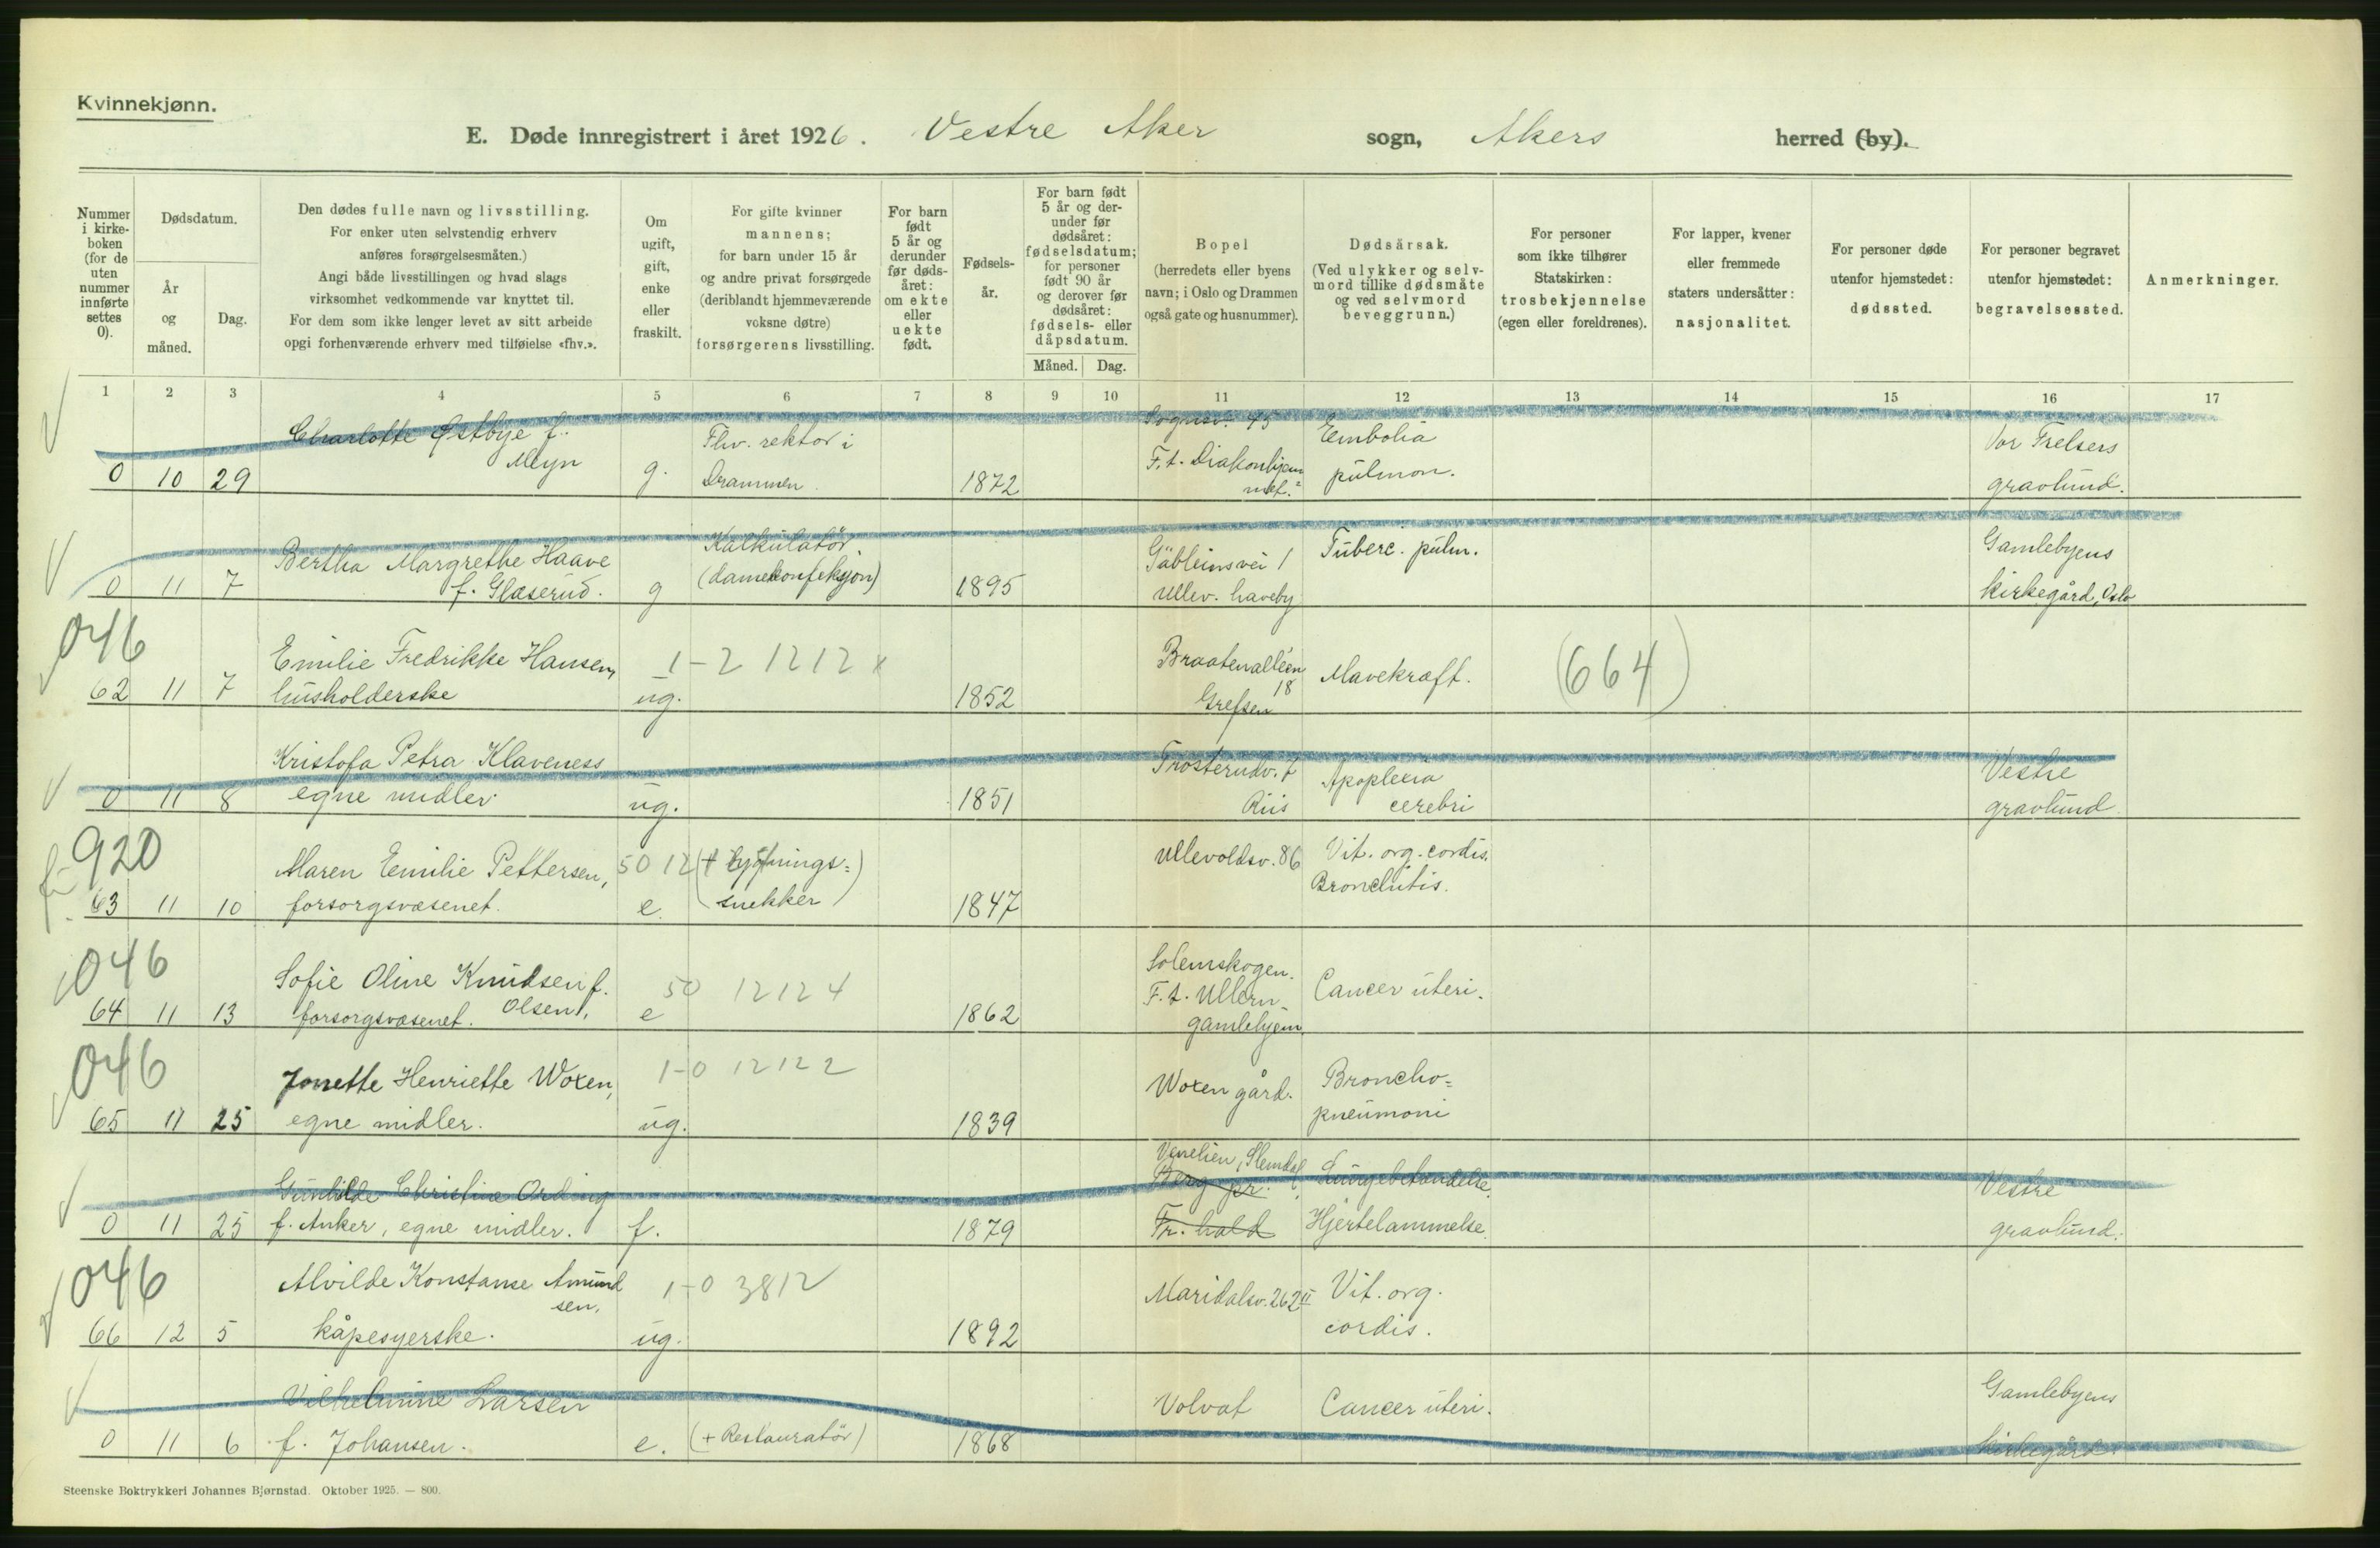 Kvinnekjønn.
E. Døde innregistrert i året 1926. Vestre Aker sogn, Akers herred (by).
Nummer i kirke-boken (for de uten nummer innførte settes 0).
Dødsdatum.
År og måned.
Dag.
Den dødes fulle navn og livsstilling.
For enker uten selvstendig erhverv
anføres forsørgelsesmåten.)
Angi både livsstillingen og hvad slags
virksomhet vedkommende var knyttet til.
For dem som ikke lenger levet av sitt arbeide
opgi forhenværende erhverv med tilføielse «fhv.».
Om ugift, gift, enke eller fraskilt.
For gifte kvinner
mannens;
for barn under 15 år
og andre privat forsørgede
(deriblandt hjemmeværende
voksne døtre)
forsørgerens livsstilling.
For barn født 5 år og derunder før døds-året: om ekte eller uekte født.
Fødsels-år.
For barn født 5 år og der-under før dødsåret: fødselsdatum; for personer født 90 år og derover før dødsåret: fødsels- eller dåpsdatum.
Måned. Dag.
Bopel
(herredets eller byens
navn; i Oslo og Drammen
også gate og husnummer).
Dødsårsak.
(Ved ulykker og selv-
mord tillike dødsmåte
og ved selvmord
beveggrunn.)
For personer
som ikke tilhører
Statskirken:
trosbekjennelse
(egen eller foreldrenes).
For lapper, kvener
eller fremmede
staters undersåtter:
nasjonalitet.
For personer døde
utenfor hjemstedet:
dødssted.
For personer begravet
utenfor hjemstedet:
begravelsessted.
Anmerkninger.
1 2 3 4 5 6 7 8 9 10 11 12 13 14 15 16 17
Charlotte Østbye f. Fhv. rektor i Sognsv. 45 Embolia Vor Frelsers
0 10 29 Meyn g. Drammen. 1872 F.t. Diakonhjem met. pulmon. gravlund.
Bertha Margrethe Haave Kalkulatör Gäbleinsvei 1 Tuberc. pulm. Gamlebyens
0 11 7 f. Glæserud. g (damekonfeksjon) 1895 Ullev. haveby kirkegård, Oslo
046
Emilie Fredrikke Hansen, 1-2 12 12 x Braatenalléen 18 Mavekræft. (664)
62 11 7 husholderske ug. 1852 Grefsen
Kristofa Petra Klaveness Trosterudv. 7 Apoplexia Vestre
0 11 8 egne midler. ug. 1851 Riis cerebri gravlund
920
Maren Emilie Pettersen, 50 12 Ullevoldsv. 86 Vit. org. cordis.
63 11 10 forsorgsvæsenet. e. snekker) 1847 Bronchitis.
046
Sofie Oline Knudsen f. 50 12 12 4 Solemskogen. Cancer uteri.
64 11 13 forsorgsvæsenet. Olsen, e 1862 F.t. Ullern gamlehjem.
046
Jonette Henriette Woxen, 1-0 12 12 2 Woxen gård. Broncho-
65 11 25 egne midler. ug. 1839 pneumoni
Gunhilde Christine Ording Slemdal Berg pr. Lungebetændelse, Vestre
0 11 25 f. Anker, egne midler. f. 1879 Fr. hald Hjertelammelse. gravlund.
046
Alvilde Konstanse Amund 1-0 3812 Maridalsv. 262 II Vit. org.
sen,
66 12 5 kåpesyerske. ug. 1892 cordis.
Vilhelmine Larsen Volvat Cancer uteri. Gamlebyens
0 11 6 f. Johansen. e. (+ Restauratör) 1868 kirkegård.
Steenske Boktrykkeri Johannes Bjørnstad. Oktober 1925. — 800.